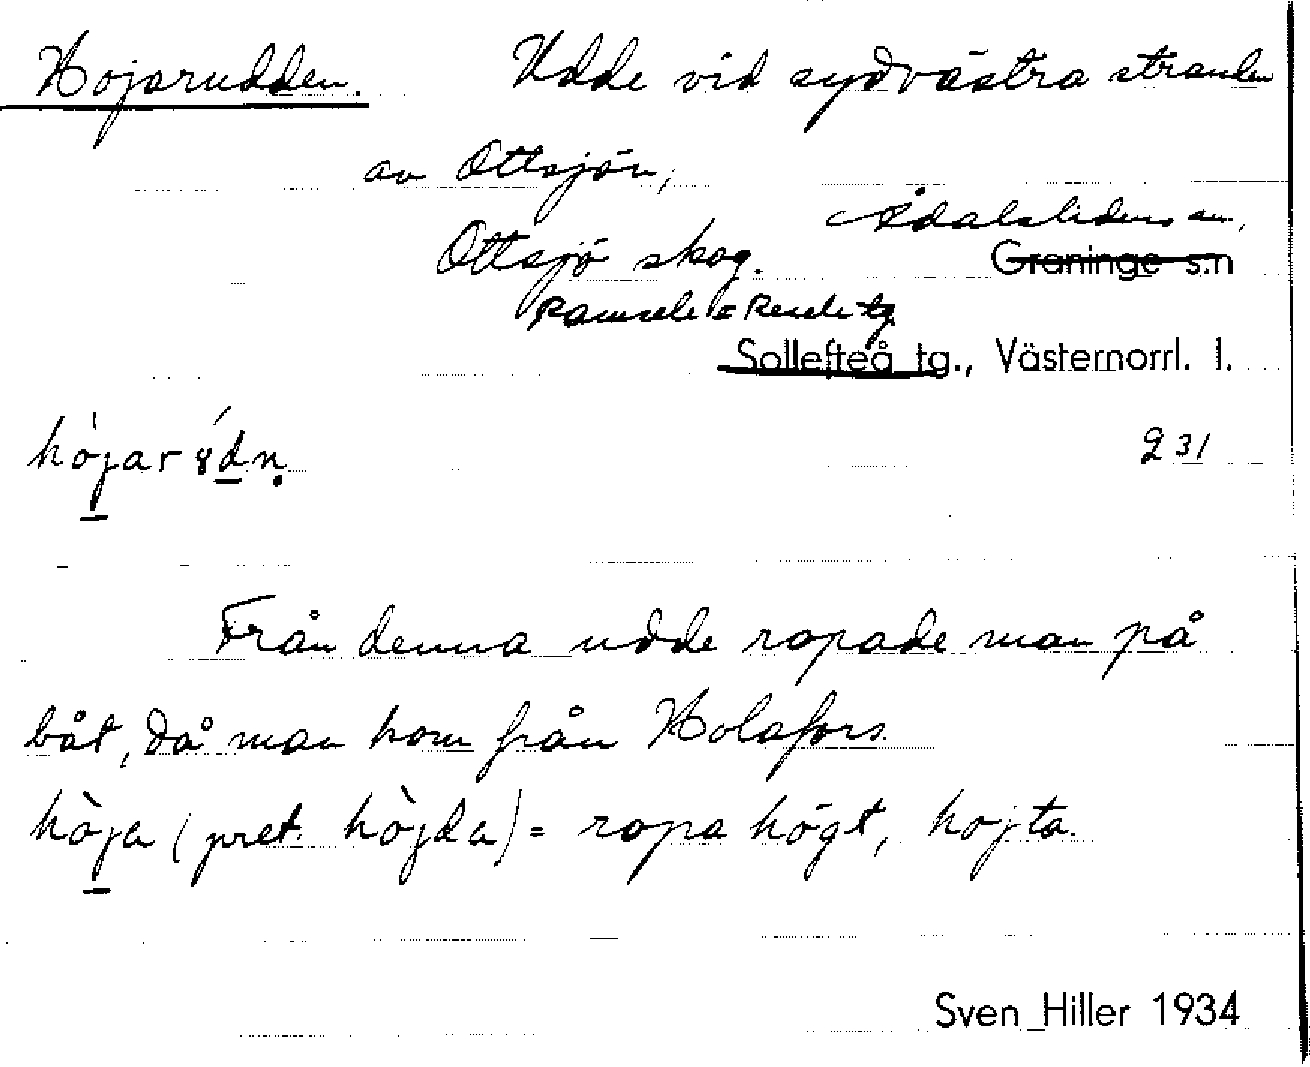 Hojarudden. Udde vid sydvästra stranden
av Ottsjön,
Ådalslidens sn,
Ottsjö skog. Graninge s:n
Ramsele o Resele tg
Sollefteå tg., Västernorrl. l.
höjar dn 231
Från denna udde ropade man på
båt, då man kom från Holafors.
hòja (pret. hòjda) = ropa högt, hojta.
Sven Hiller 1934